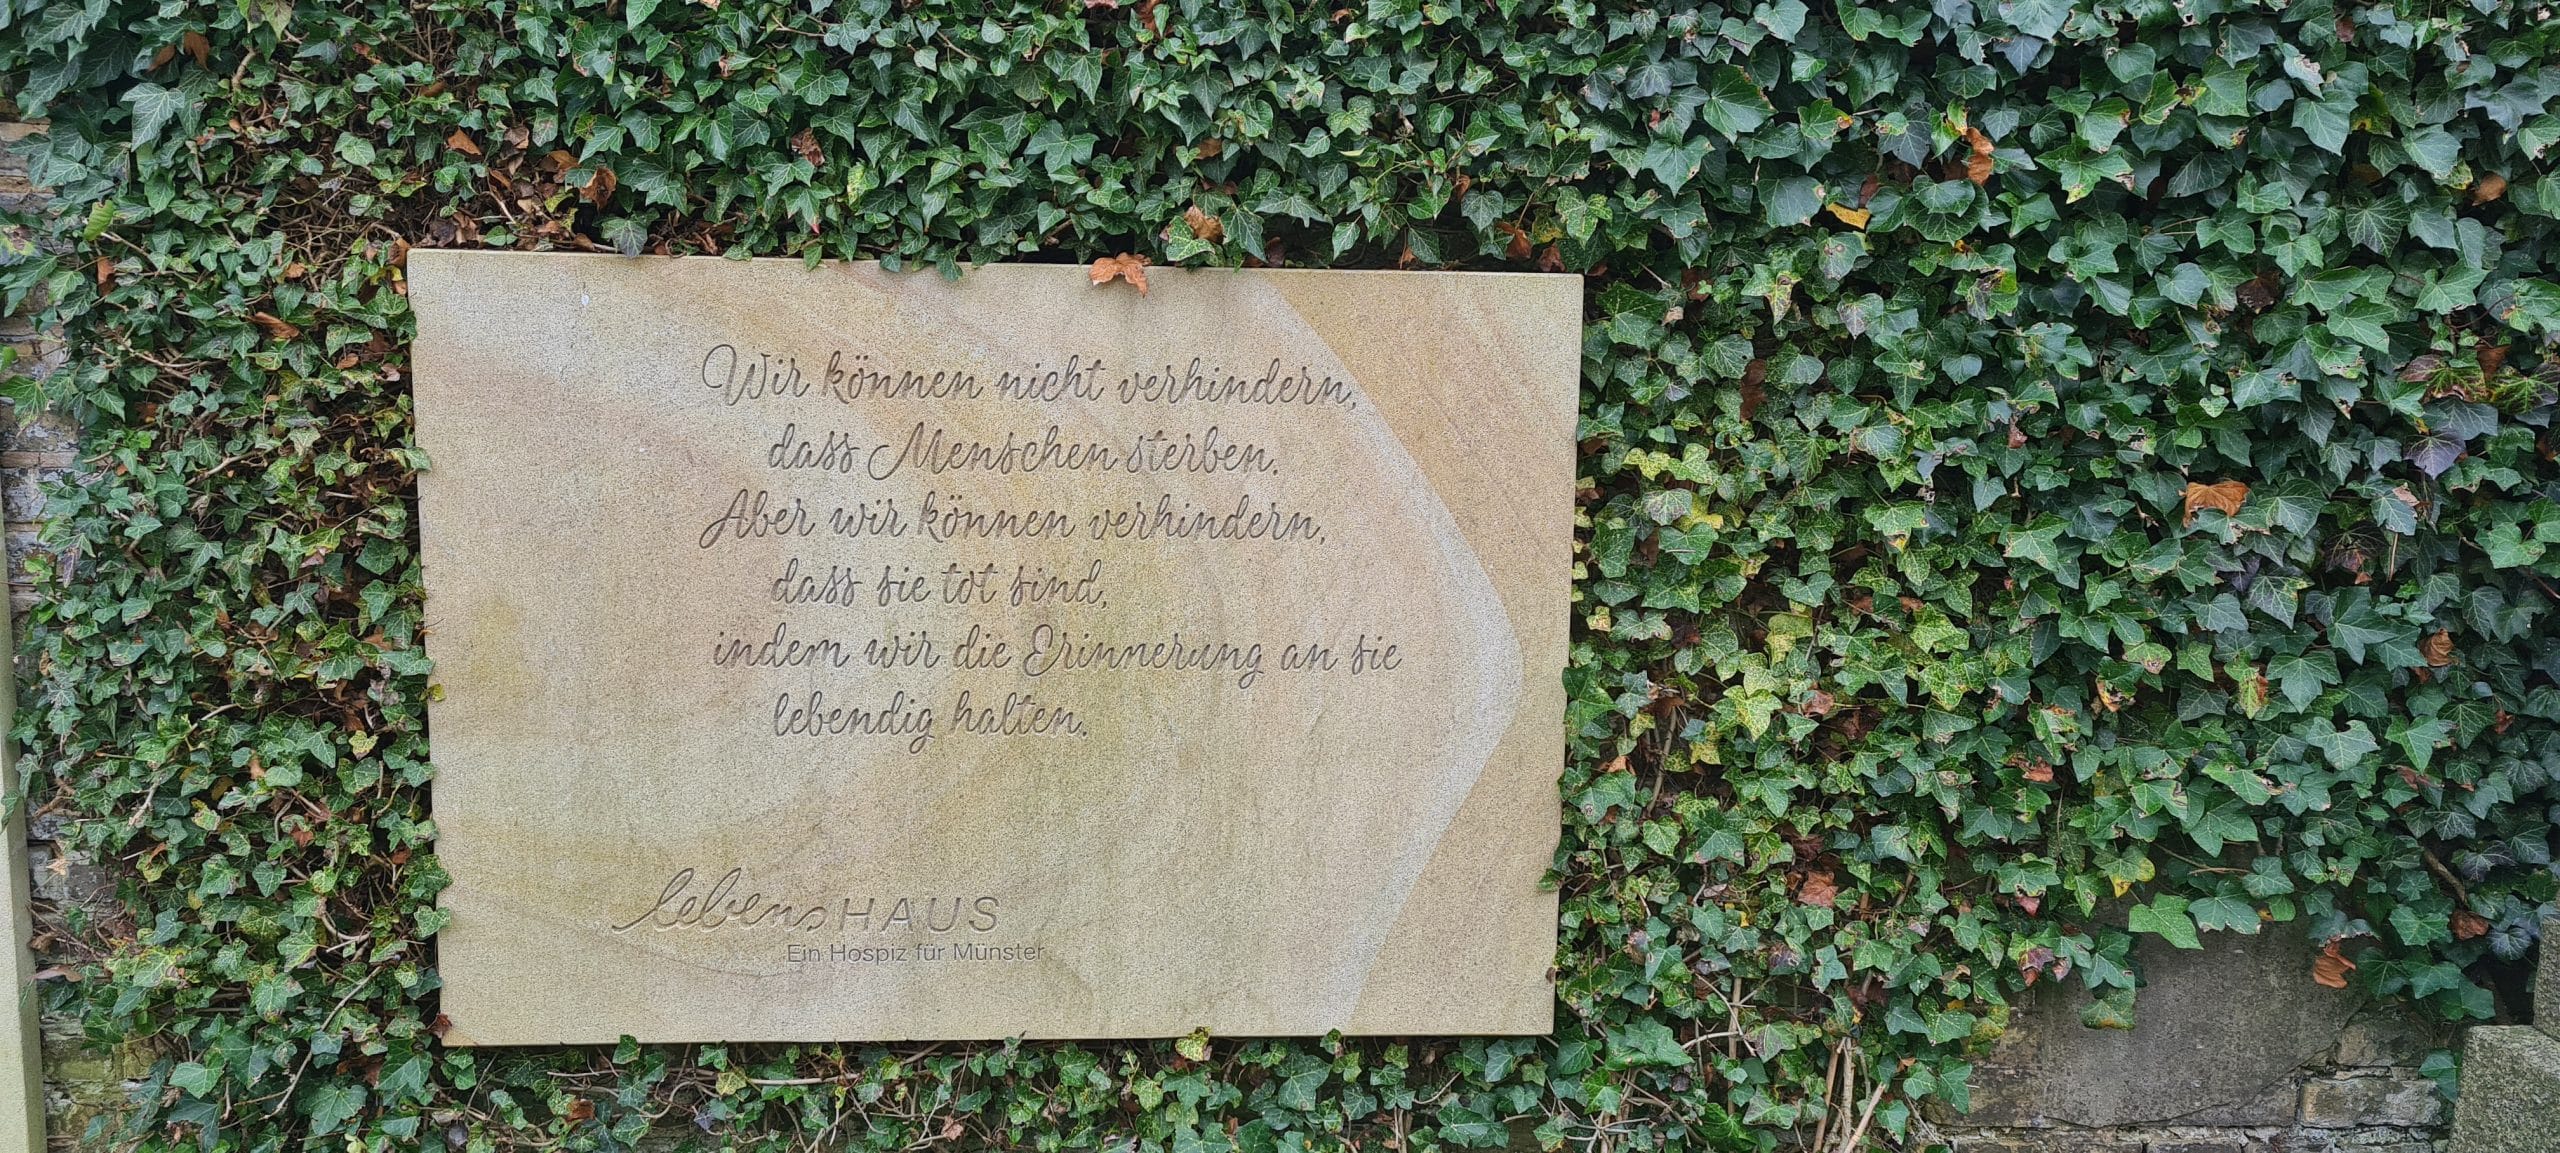 Wir können nicht verhindern,
dass Menschen sterben.
Aber wir können verhindern,
dass sie tot sind,
indem wir die Erinnerung an sie
lebendig halten.
lebensHAUS
Ein Hospiz für Münster